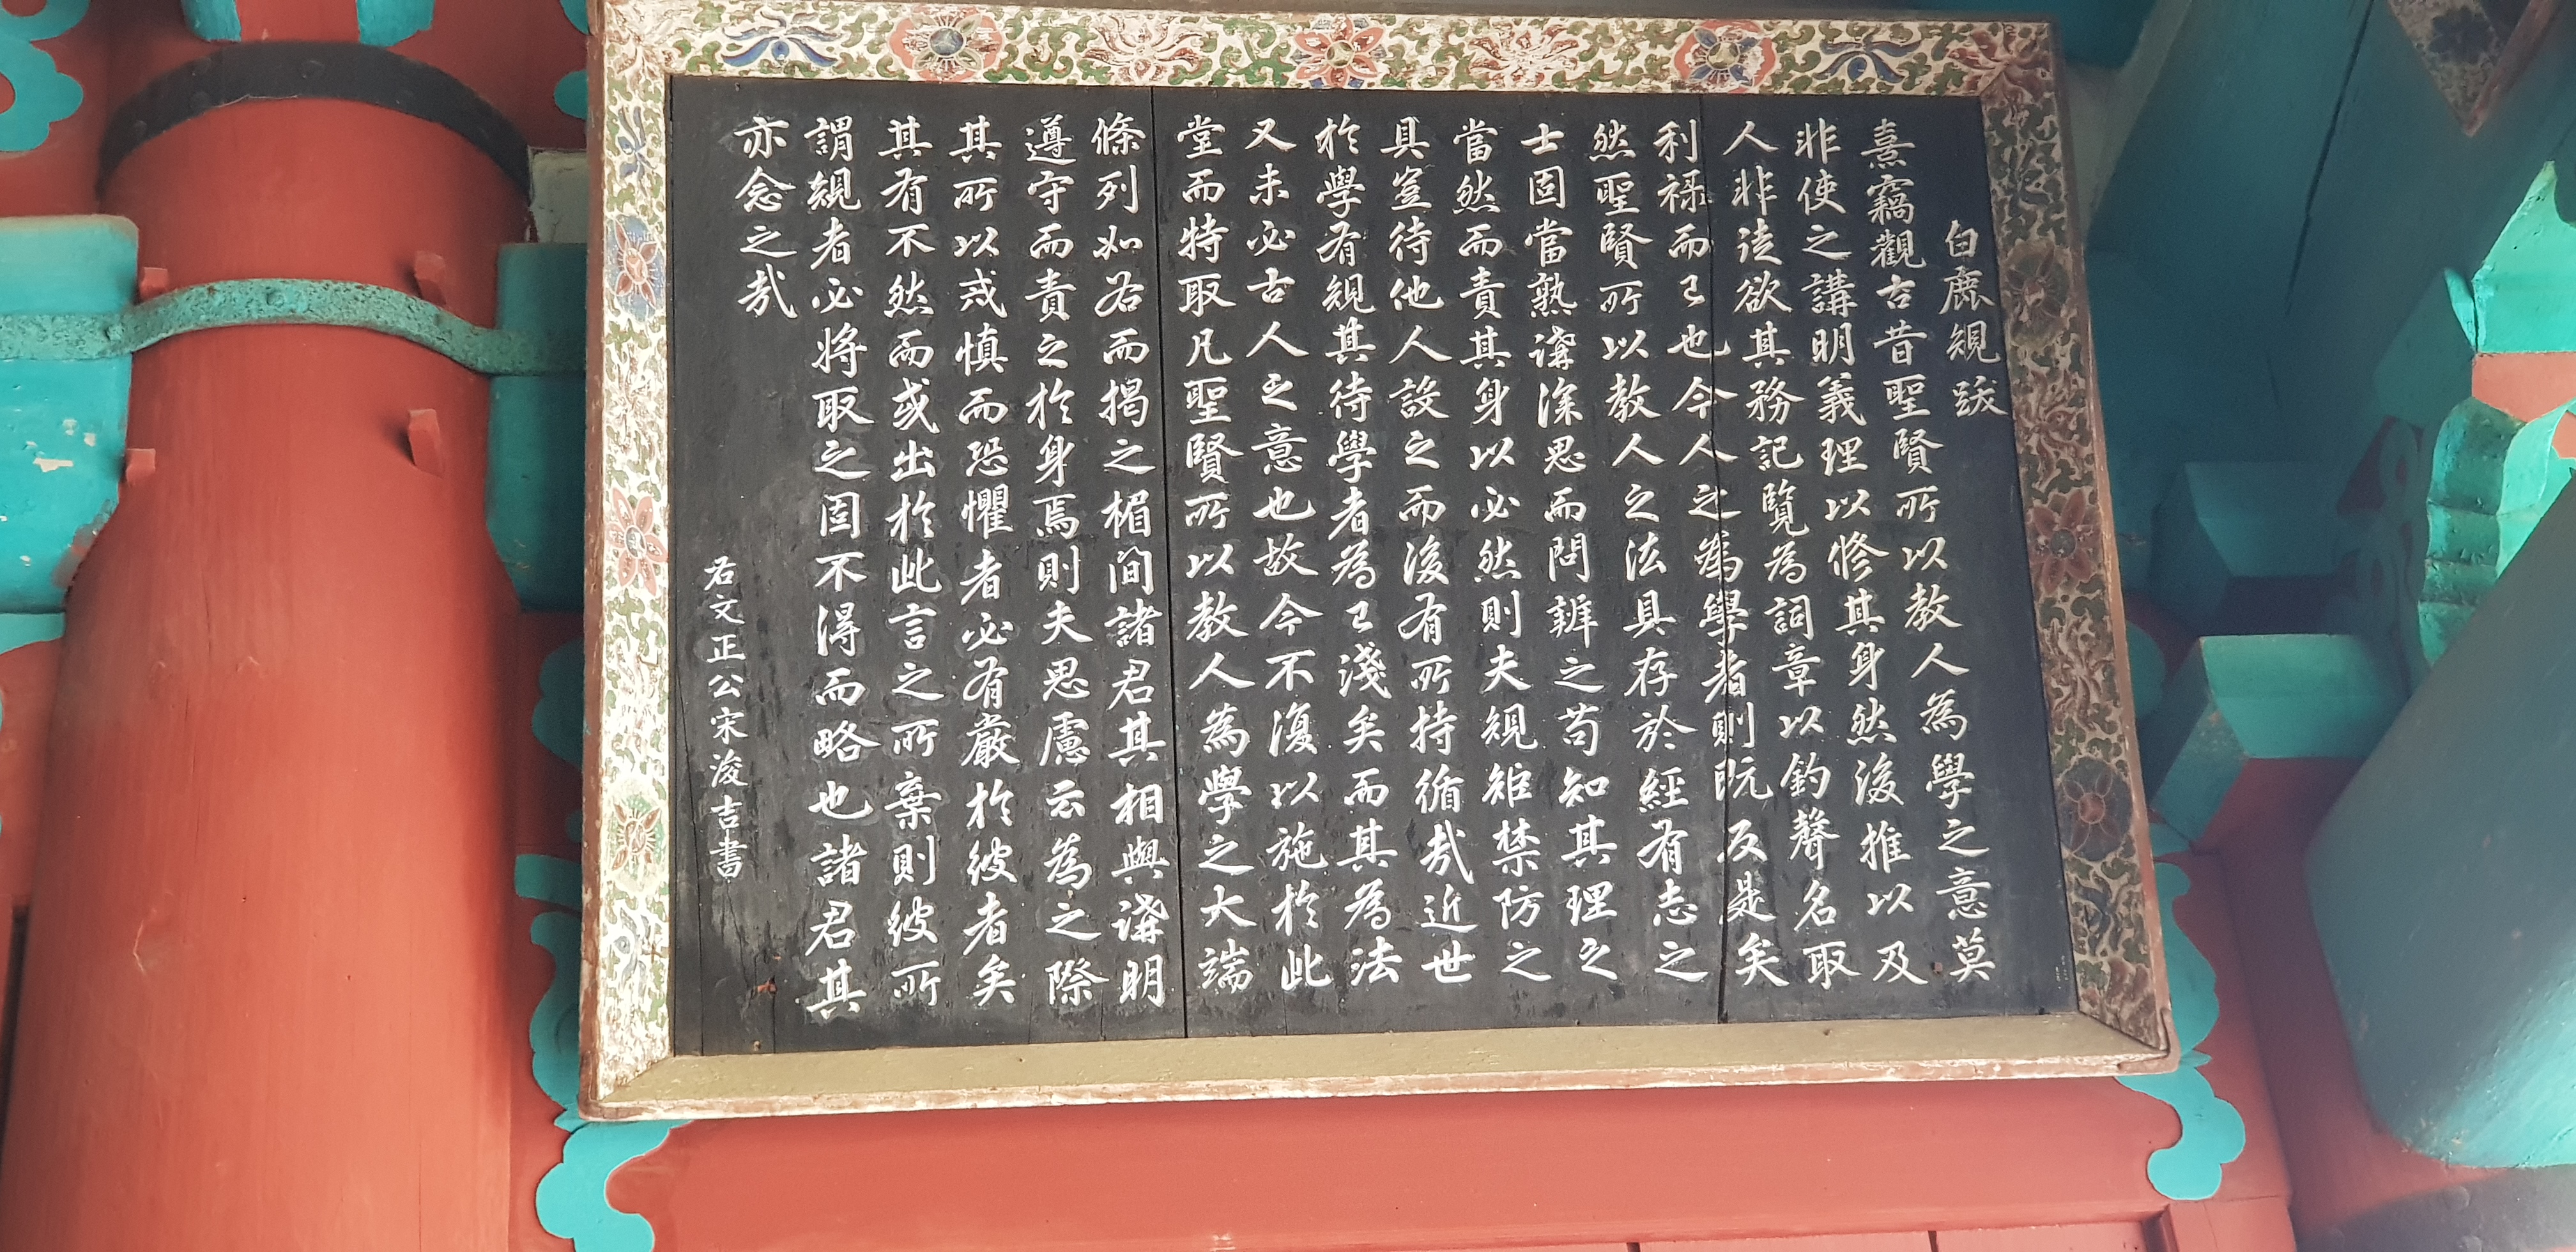 白鹿規跋
熹竊觀古昔聖賢所以教人為學之意莫
非使之講明義理以修其身然後推以及
人非徒欲其務記覽為詞章以釣聲名取
利祿而已也今人之為學者則既反是矣
然聖賢所以教人之法具存於經有志之
士固當熟講深思而問辨之苟知其理之
當然而責其身以必然則夫規矩禁防之
具豈待他人設之而後有所持循哉近世
於學有規其待學者為已淺矣而其為法
又未必古人之意也故今不復以施於此
堂而特取凡聖賢所以教人為學之大端
條列如右而揭之楣間諸君其相與講明
遵守而責之於身焉則夫思慮云為之際
其所以戒慎而恐懼者必有嚴於彼者矣
其有不然而或出於此言之所棄則彼所
謂規者必將取之固不得而略也諸君其
亦念之哉
右文正公宋浚吉書